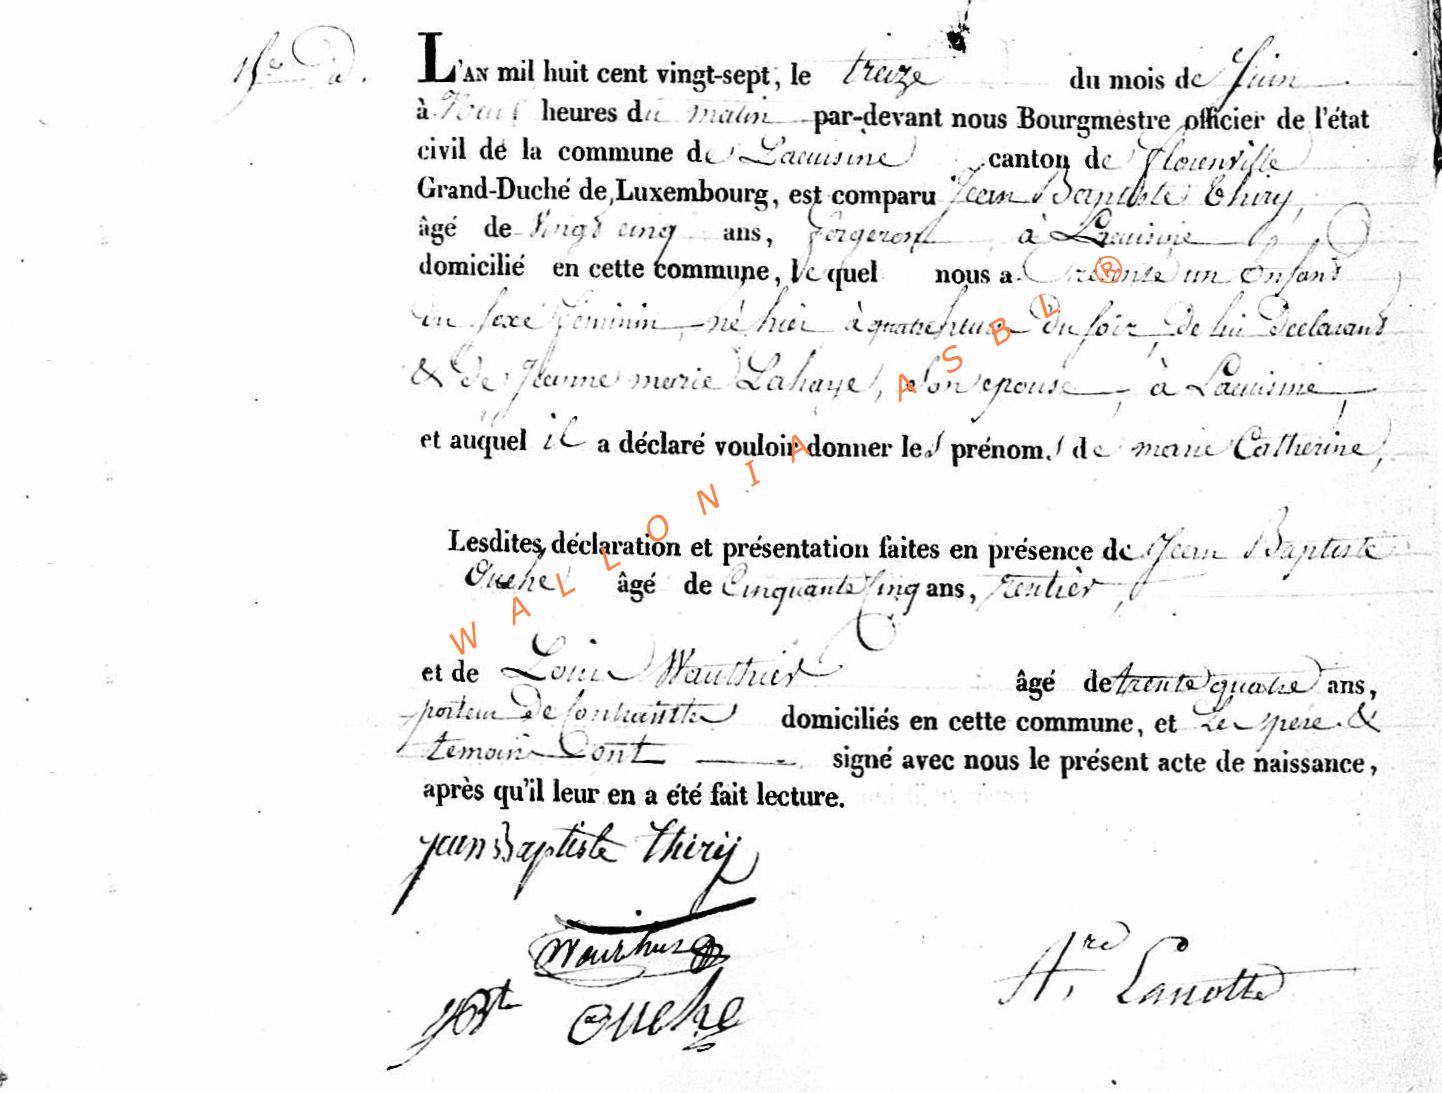 L'AN mil huit cent vingt-sept, le treize du mois de Juin
à Neuf heures du matin par-devant nous Bourgmestre officier de l'état
civil de la commune de Lacuisine canton de Florenville
Grand-Duché de Luxembourg, est comparu Jean Baptiste Thiry,
âgé de Vingt cinq ans, forgeron à Lacuisine
domicilié en cette commune, lequel nous a Présenté un Enfant
du sexe féminin, né hier à quatre heures du soir, de lui Déclarant
& de Jeanne marie Lahaye, son épouse, à Lacuisine,
et auquel il a déclaré vouloir donner les prénoms de marie Catherine,
Lesdites déclaration et présentation faites en présence de Jean Baptiste
Ouché âgé de Cinquante Cinq ans, rentier,
et de Louis Wauthier âgé de trente quatre ans,
porteur de Contrainte domiciliés en cette commune, et Le père &
temoins ont signé avec nous le présent acte de naissance,
après qu'il leur en a été fait lecture.
Jean Baptiste Thirij
JBte Ouché
Are Lanotte
WALLONIA ASBL ®